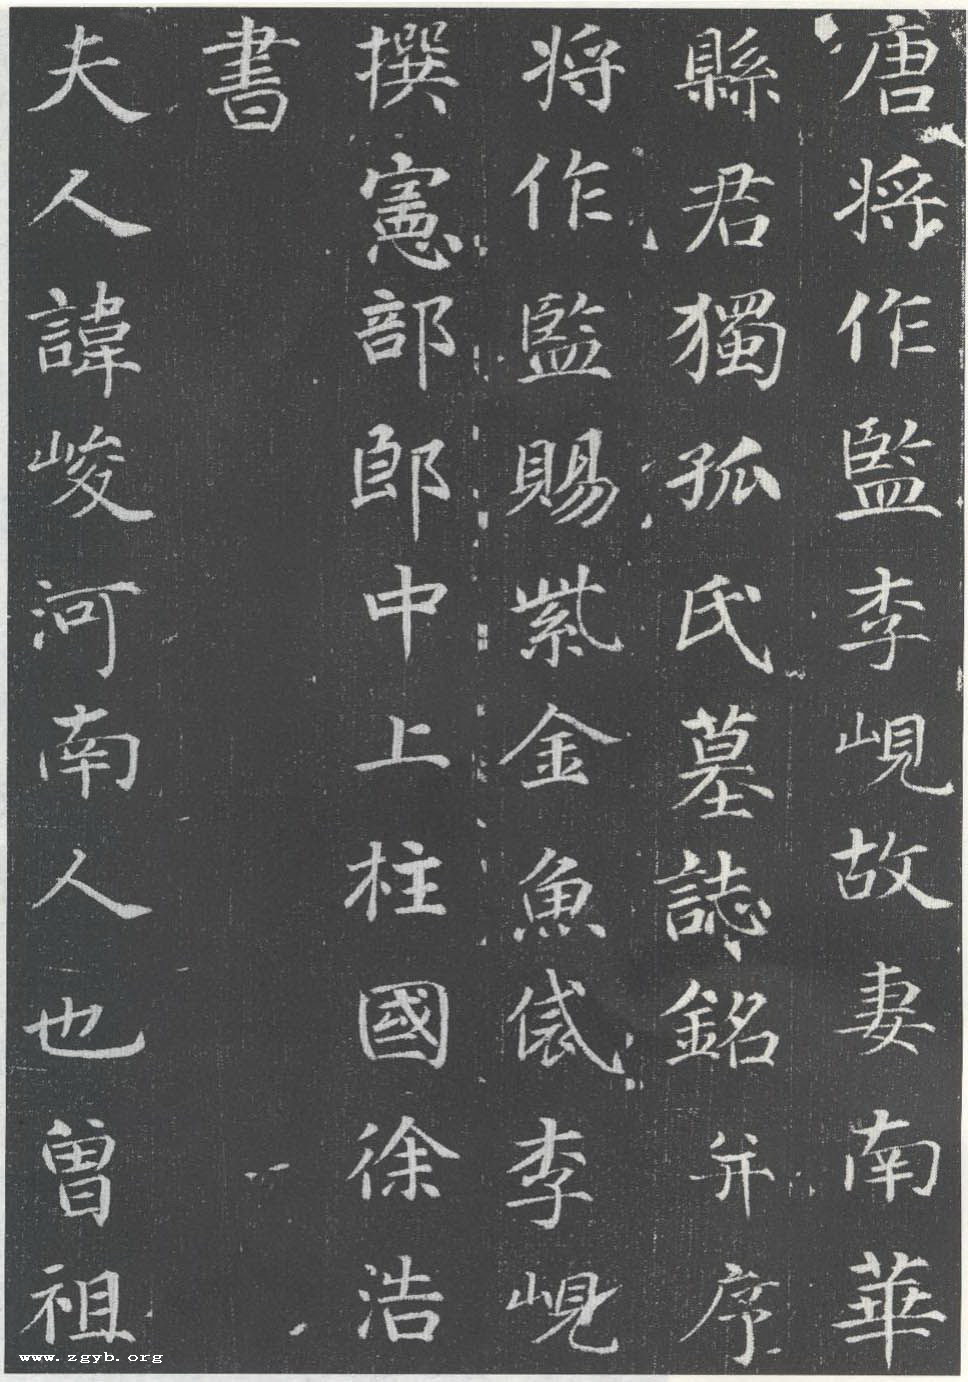 唐將作監李峴故妻南華
縣君獨孤氏墓誌銘并序
將作監賜紫金魚袋李峴
撰憲部郎中上柱國徐浩
書
夫人諱峻河南人也曾祖
www.zgyb.org